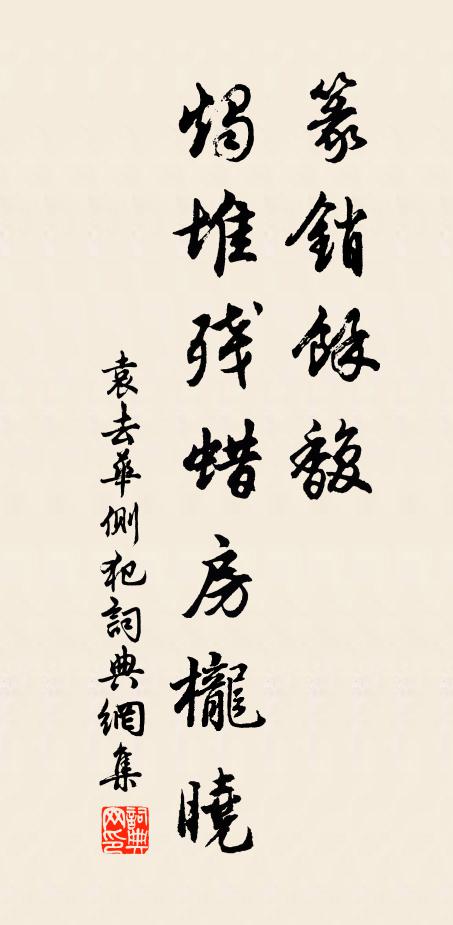 篆銷餘馥
燭堆残蜡房櫳曉
袁去華側犯詞典網集
詞典网印